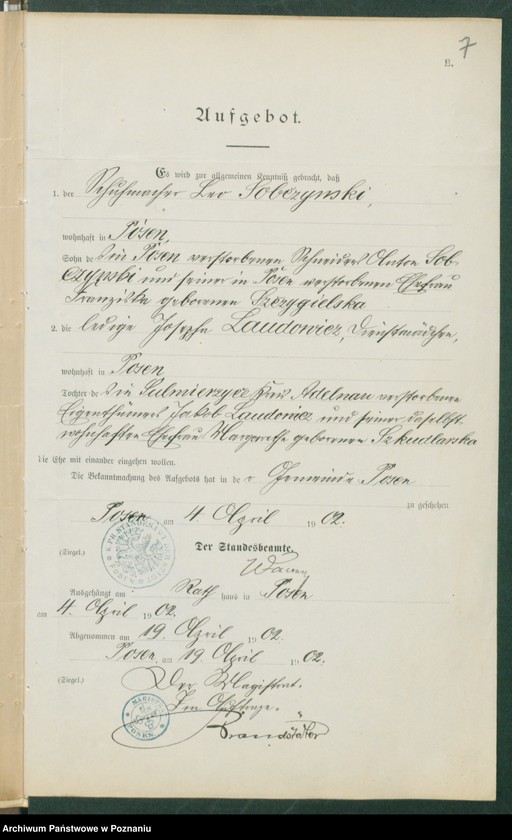 7
B.
Aufgebot.
Es wird zur allgemeinen Kenntniß gebracht, daß
1. der Schuhmacher Leo Sobczynski,
wohnhaft in Posen,
Sohn des in Posen verstorbenen Schneiders Anton Sob-
czynski und seiner in Posen verstorbenen Ehefrau
Franziska geborenen Szczygielska
2. die ledige Josepha Laudowicz, Dienstmädchen,
wohnhaft in Posen
Tochter des in Sulmierzyce Kreis Adelnau verstorbenen
Eigenthümers Jakob Laudowicz und seiner daselbst
wohnhaften Ehefrau Margarethe geborenen Szkudlarska
die Ehe mit einander eingehen wollen.
Die Bekanntmachung des Aufgebots hat in der Gemeinde Posen
zu geschehen
Posen am 4. April 1902.
(Siegel.) Der Standesbeamte.
Ausgehängt am Rathhaus in Posen
am 4. April 1902.
Abgenommen am 19. April 1902.
Posen, am 19. April 1902.
(Siegel.) Der Magistrat.
Im Auftrage.
Brandstäter
MAGISTRAT
POSEN
Archiwum Państwowe w Poznaniu